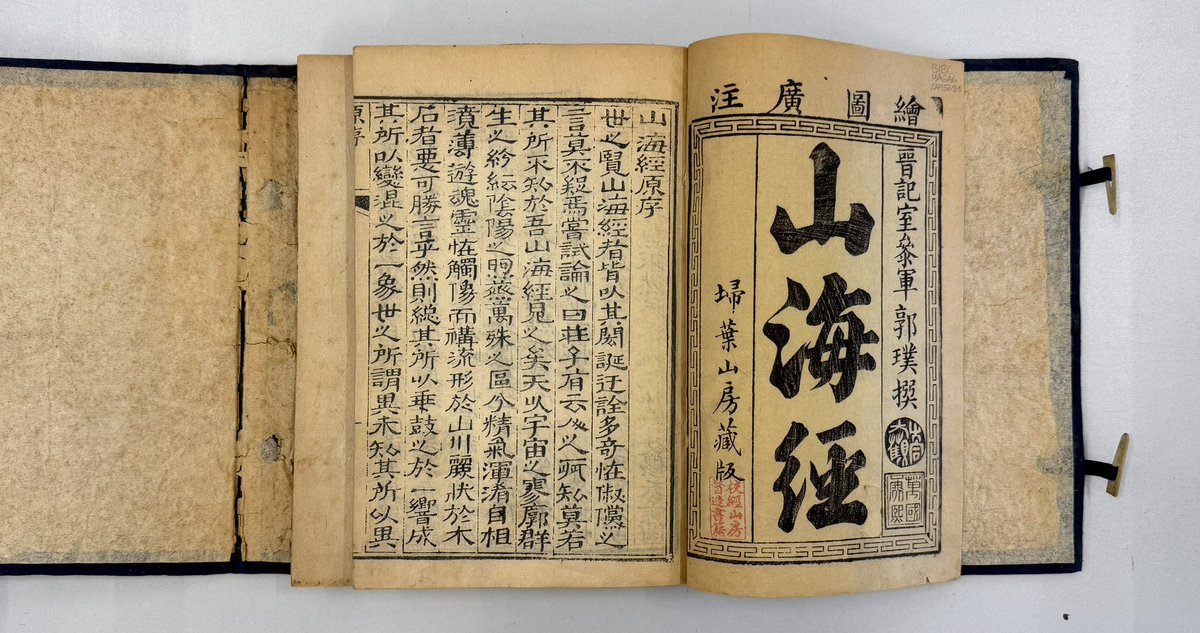 繪圖廣注
晉記室參軍郭璞撰
山海經
埽葉山房藏版
校經山房
督造書籍
山海經原序
世之覽山海經者皆以其閎誕迂誇多奇怪俶儻之
言莫不疑焉嘗試論之曰莊子有云人之所知莫若
其所不知於吾山海經見之矣夫以宇宙之寥廓群
生之紛紜陰陽之煦蒸萬殊之區分精氣渾淆自相
濆薄遊魂靈怪觸像而構流形於山川麗狀於木
石者惡可勝言乎然則總其所以乖鼓之於一響成
其所以變混之於一象世之所謂異未知其所以異
原序